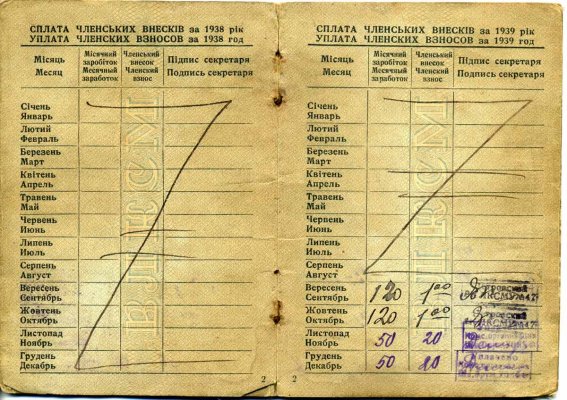 СПЛАТА ЧЛЕНСЬКИХ ВНЕСКІВ за 1938 рік
УПЛАТА ЧЛЕНСКИХ ВЗНОСОВ за 1938 год
Місяць
Месяц
Місячний
заробіток
Месячный
заработок
Членський
внесок
Членский
взнос
Підпис секретаря
Подпись секретаря
Січень
Январь
Лютий
Февраль
Березень
Март
Квітень
Апрель
Травень
Май
Червень
Июнь
Липень
Июль
Серпень
Август
Вересень
Сентябрь
Жовтень
Октябрь
Листопад
Ноябрь
Грудень
Декабрь
ВЛКСМ
2
СПЛАТА ЧЛЕНСЬКИХ ВНЕСКІВ за 1939 рік
УПЛАТА ЧЛЕНСКИХ ВЗНОСОВ за 1939 год
Місяць
Месяц
Місячний
заробіток
Месячный
заработок
Членськ.
внесок
Членский
взнос
Підпис секретаря
Подпись секретаря
Січень
Январь
Лютий
Февраль
Березень
Март
Квітень
Апрель
Травень
Май
Червень
Июнь
Липень
Июль
Серпень
Август
Вересень
Сентябрь 120 1 00
Жовтень
Октябрь 120 1 00
Листопад
Ноябрь 50 20
Грудень
Декабрь 50 20
ВЛКСМ
2